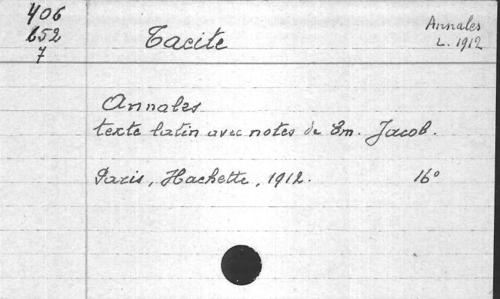 406
652
7
Tacite
Annales
L. 1912
Annales
texte latin avec notes de Em. Jacob.
Paris, Hachette, 1912. 16°